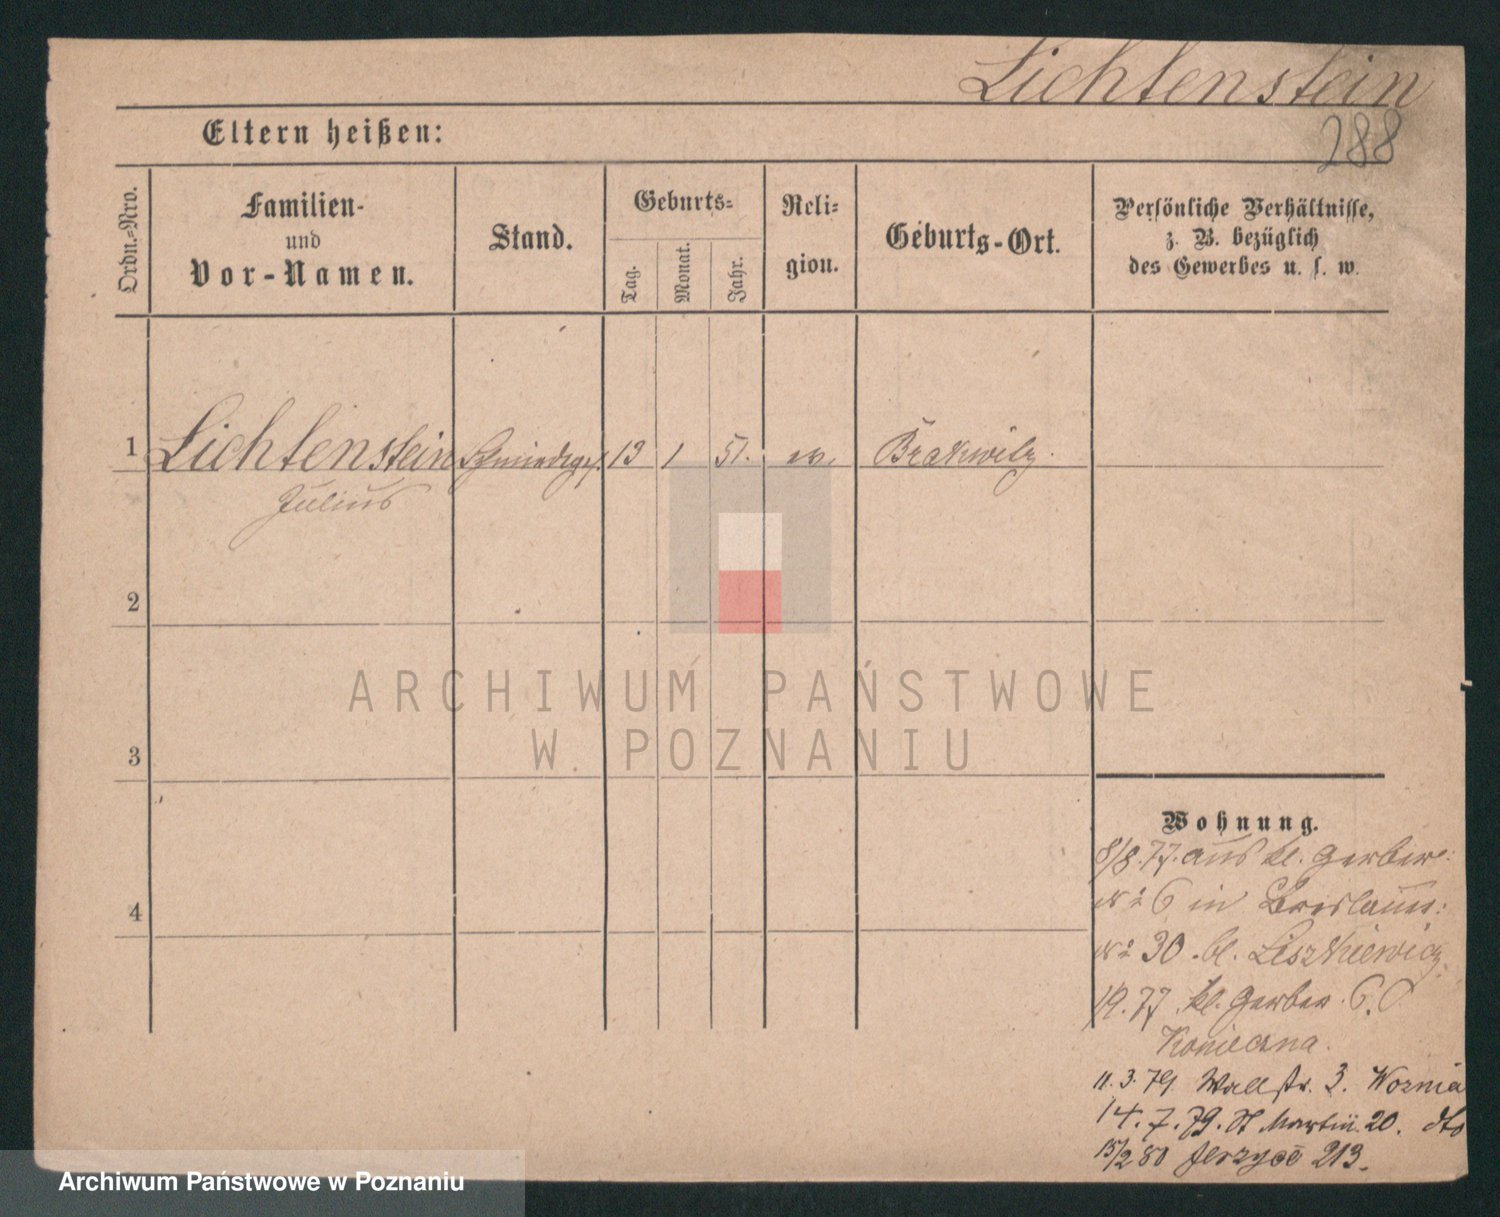 Lichtenstein
288
Eltern heißen:
Ordn.-Nro.
Familien-
und
Vor-Namen.
Stand.
Geburts-
Tag.
Monat.
Jahr.
Reli-
gion.
Geburts-Ort.
Persönliche Verhältnisse,
z. B. bezüglich
des Gewerbes u. s. w.
1 Lichtenstein Schmiedeges. 13 1 51. ev. Brakwitz.
Julius
2
ARCHIWUM PAŃSTWOWE
W POZNANIU
3
4
Wohnung.
8/8.77. aus kl. Gerber:
No 6 in Breslauer:
No 30. bl. Liszkiewicz
19.77. kl. Gerber. 6.
Konieczna.
11.3.79. Wallstr. 3. Woznia
14.7.79. St Martin 20. dto
15/2 80 Jerzyce 213.
Archiwum Państwowe w Poznaniu